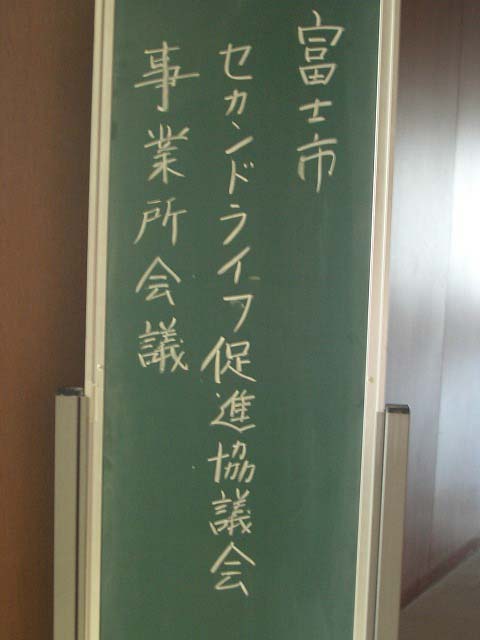 富士市
セカンドライフ促進協議会
事業所会議